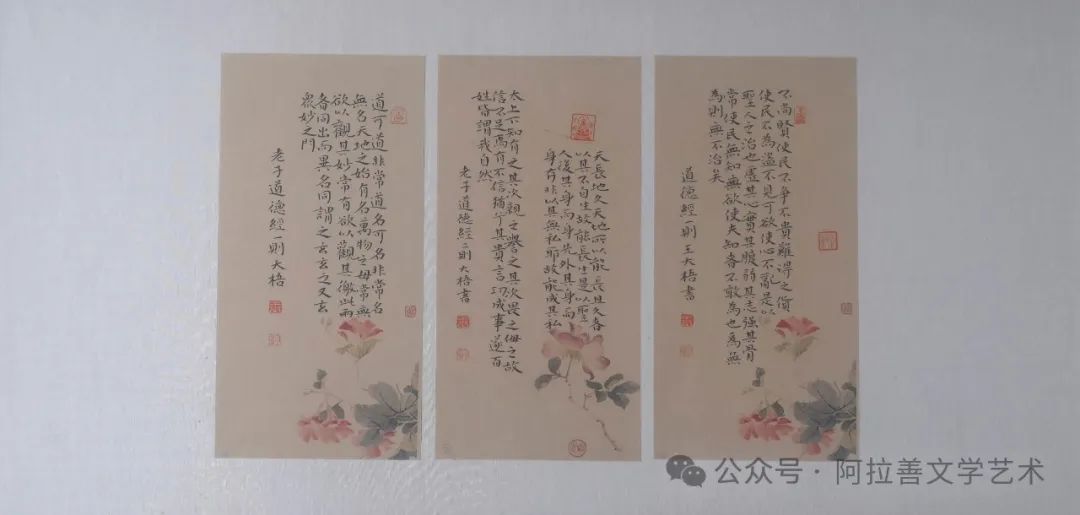 不尚賢使民不爭不貴難得之貨
使民不為盜不見可欲使心不亂是以
聖人之治也虛其心實其腹弱其志強其骨
常使民無知無欲使夫知者不敢為也為無
為則無不治矣
道德經一則王大梧書
天長地久天地所以能長且久者
以其不自生故能長生是以聖
人後其身而身先外其身而
身存非以其無私耶故能成其私
太上下知有之其次親之譽之其次畏之侮之故
信不足焉有不信猶兮其貴言功成事遂百
姓皆謂我自然
老子道德經二則大梧書
道可道非常道名可名非常名
無名天地之始有名萬物之母常無
欲以觀其妙常有欲以觀其徼此兩
者同出而異名同謂之玄玄之又玄
眾妙之門
老子道德經一則大梧
公众号·阿拉善文学艺术